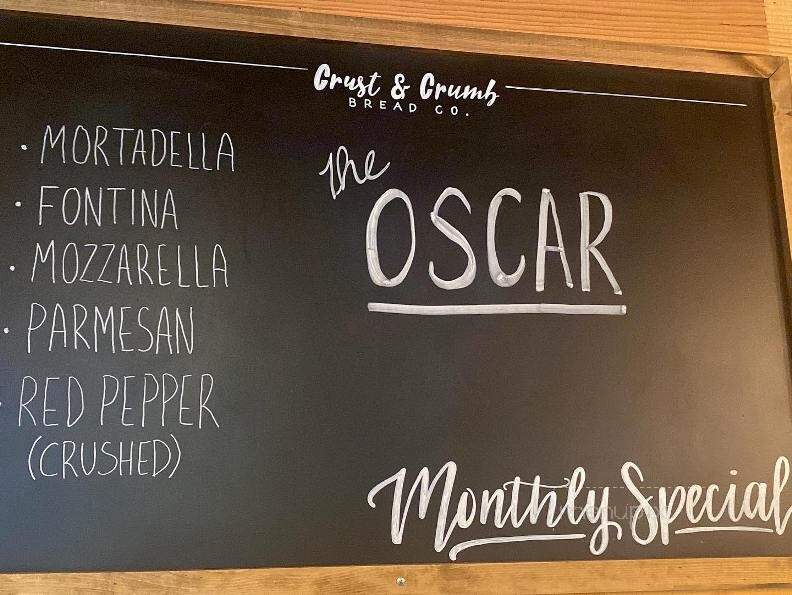 Crust & Crumb
BREAD CO.
• MORTADELLA
• FONTINA
• MOZZARELLA
• PARMESAN
• RED PEPPER
(CRUSHED)
the
OSCAR
Monthly Special